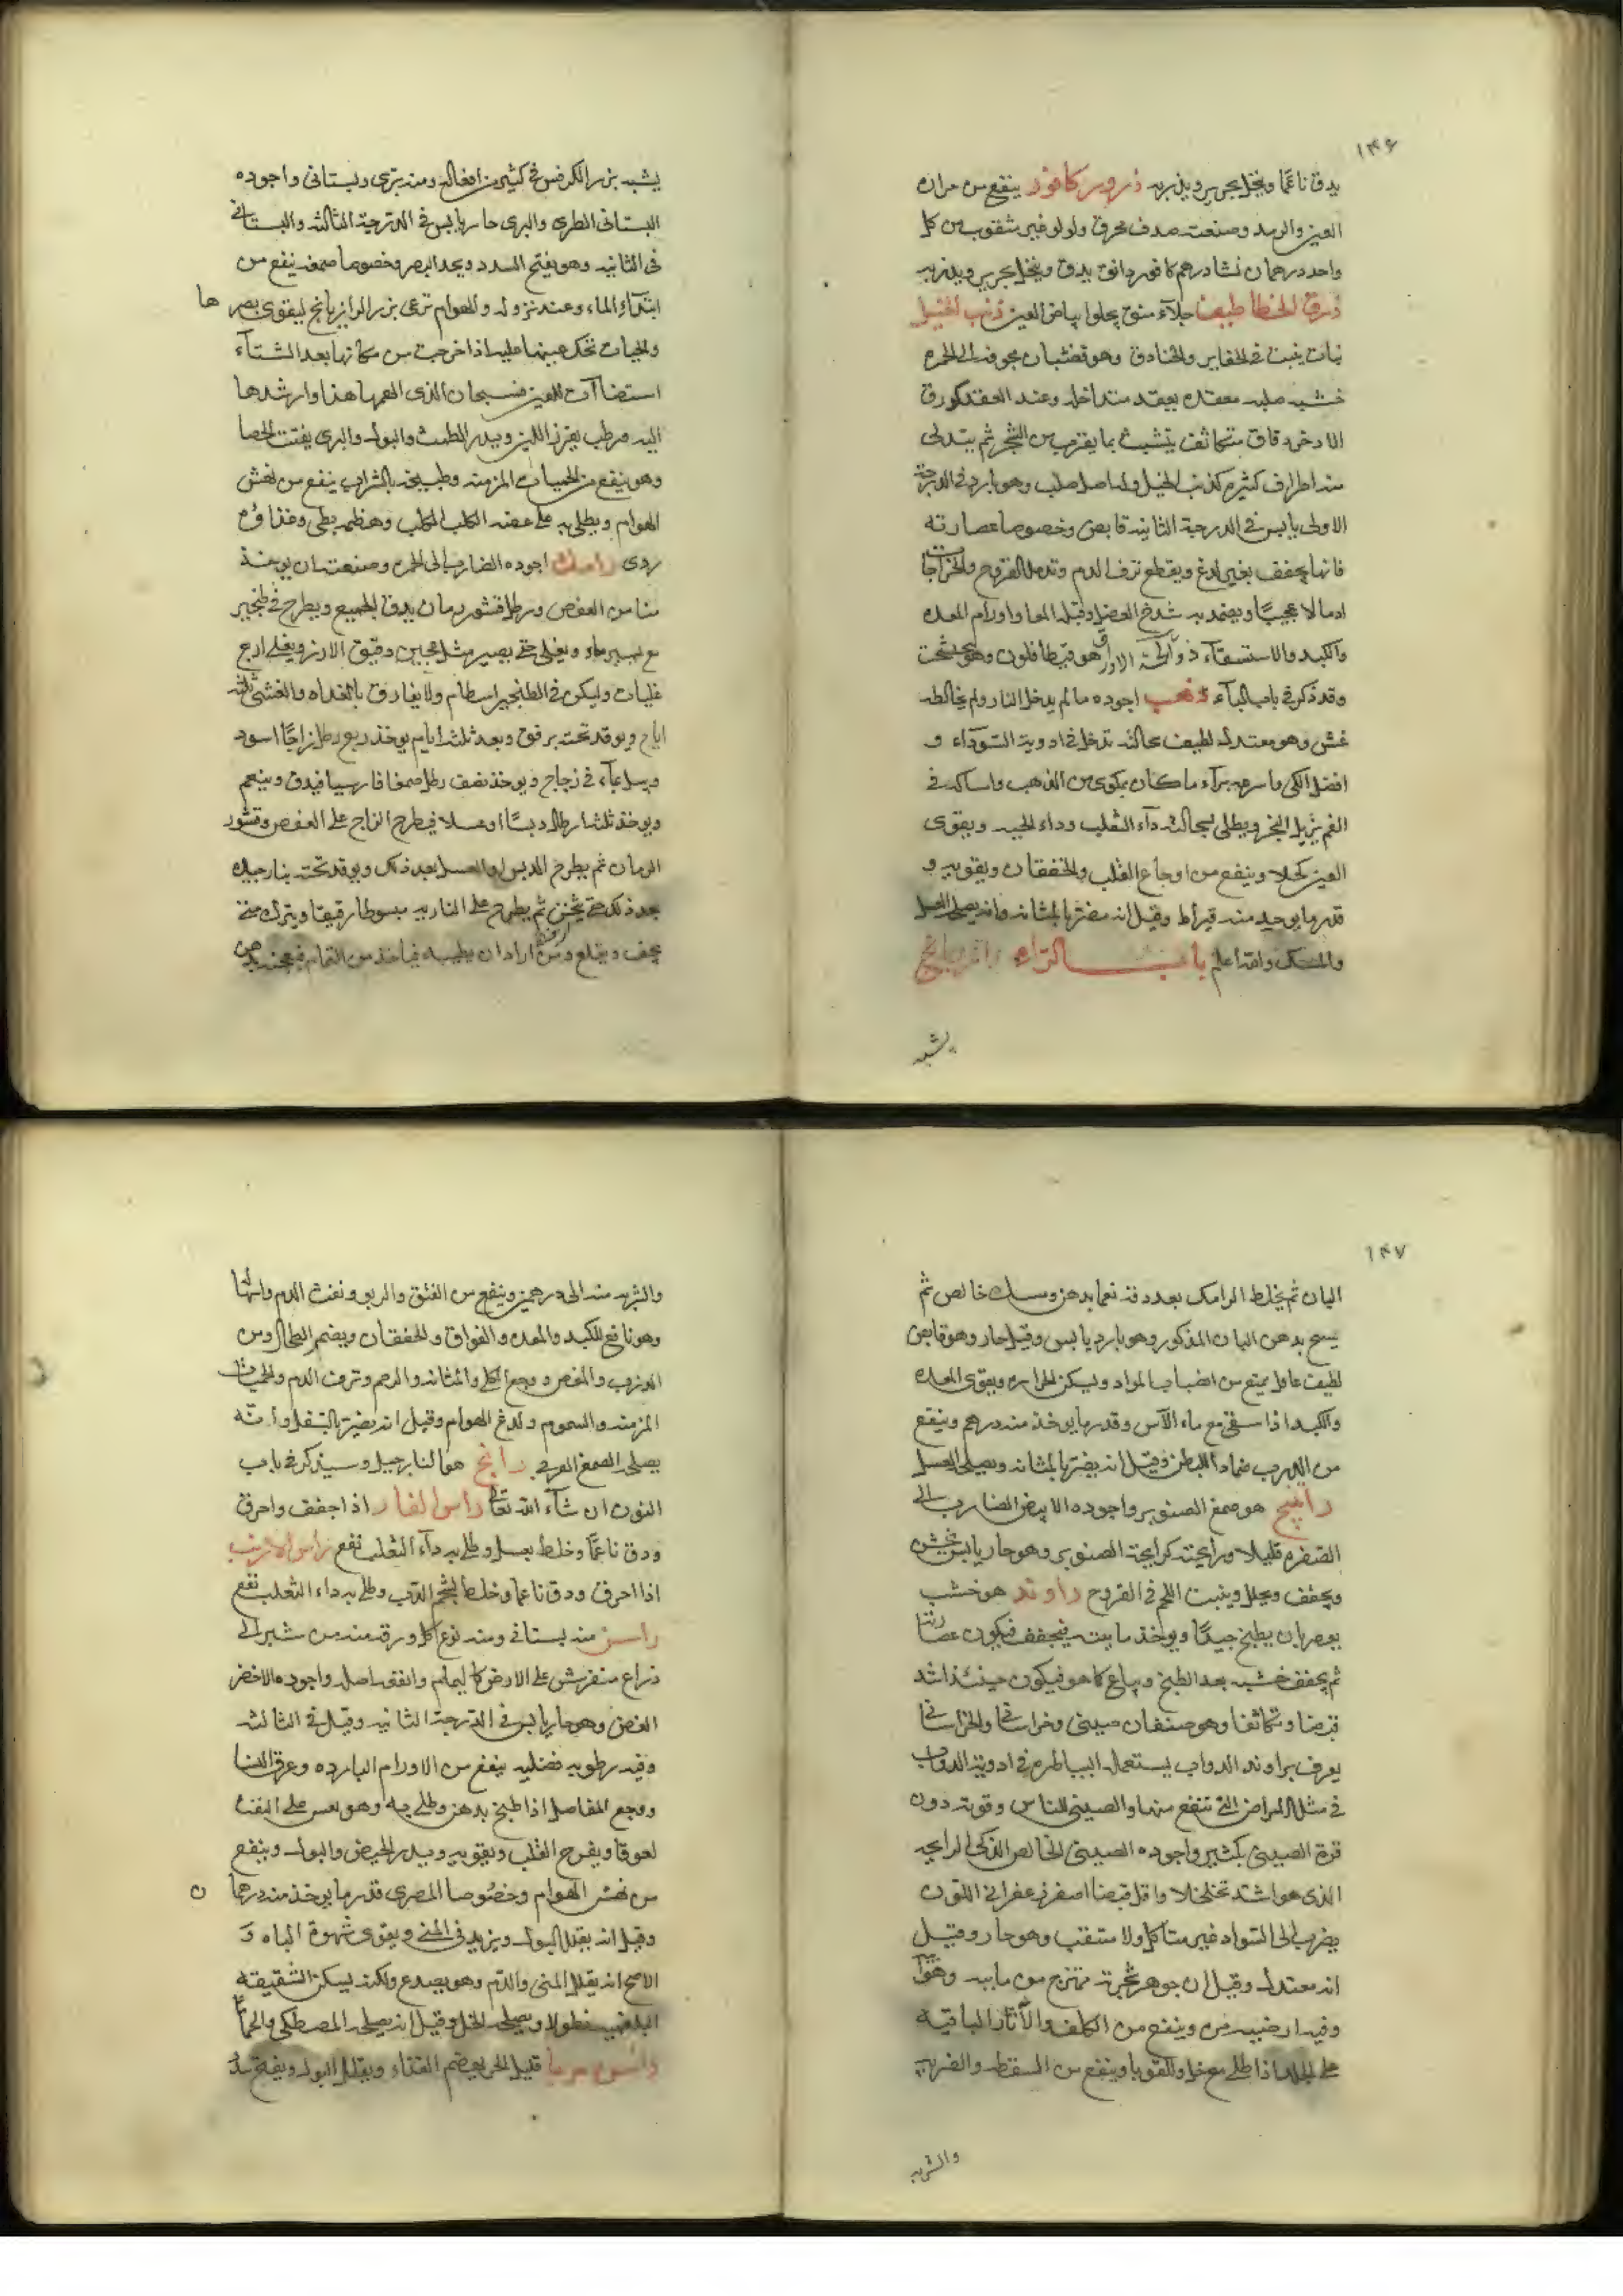 ١٤٦
يدق ناعما وينخل بحرير ويذر به ذرور كافور ينفع من حرارة
العين والرمد وصنعته صدف محرق ولولو غير مثقوب من كل
واحد درهمان نشا درهم كافور دانق يدق وينخل بحرير ويذر به
ذرق الخطاطيف جلآء منق يجلوا بياض العين ذنب الخيل
نبات ينبت في الحفاير والخنادق وهو قضبان مجوفة الى الحمرة
خشبه صلبه معقده بعقد متداخله وعند العقد كورق
الادخر دقاق متكاثف يتشبث بما يقرب من الشجر ثم يتدلى
منه اطراف كثيرة كذنب الخيل وله اصل صلب وهو بارد في الدرجة
الاولى يابس في الدرجة الثانية قابض وخصوصا عصارته
فانها يجفف بغير لدغ ويقطع نزف الدم وتدمل القروح والخراجات
ادمالا عجيبا ويضمد به شدخ العضل وقيلة المعا واورام المعده
والكبد والاستسقآء ذو ثلثة الاوراق هو قيطافلون وهو
وقد ذكر في باب البآء ذهب اجوده ما لم يدخل النار ولم يخالطه
غش وهو معتدل لطيف سحالته تدخل في ادوية السودآء و
افضل الكي واسرعه برآء ما كان بمكوى من الذهب وامساكه في
الفم يزيل البخر ويطلى بسحالته دآء الثعلب وداء الحيه ويقوى
العين كحلا وينفع من اوجاع القلب والخفقان ويقويه و
قدر ما يوخذ منه قيراط وقيل انه مضر بالمثانه وانه يصلحه العسل
والمسك والله اعلم باب الرآء رازيانج
يشبه
يشبه بزر الكرفس في كثير من افعاله ومنه برى وبستانى واجوده
البستانى الطرى والبرى حار يابس في الدرجة الثالثه والبستانى
في الثانيه وهو يفتح السدد ويحد البصر وخصوصا صمغه ينفع من
ابتدآء الماء وعند نزوله والهوام ترعى بزر الرازيانج ليقوى بصرها
والحيات تحك عينها عليه اذا خرجت من مكانها بعد الشتآء
استضاآة للعين فسبحان الذى الهمها هذا وارشدها
اليه مرطب يغزر اللبن ويدر الطمث والبول والبرى يفتت الحصا
وهو ينفع من الحميات المزمنه وطبيخه بالشراب ينفع من نهش
الهوام ويطلى به على عضه الكلب الكلب وهضمه بطى وغذاؤه
ردى رامك اجوده الضارب الى الحمرة وصنعته ان يوخذ
منا من العفص ورطل قشور رمان يدق الجميع ويطرح في طنجير
مع يسير ماء ويغلى حتى يصير مثل عجين دقيق الارز ويغلى اربع
غليات وليكن في الطنجير اسطام ولا يفارق بالغداه والعشى ثلثة
ايام ويوقد تحته برفق وبعد ثلثة ايام يوخذ ربع رطل زاجا اسود
ويبل بمآء في زجاج ويوخذ نصف رطل صمغا فارسيا فيدق وينعم
ويوخذ ثلثة ارطال دبسا او عسلا فيطرح الزاج على العفص وقشور
الرمان ثم يطرح الدبس او العسل بعد ذلك ويوقد تحته بنار جيده
بعد ذلك حتى يثخن ثم يطرح على الناريه مبسوطا رقيقا ويترك حتى
يجف ويقلع ومن اراد ان يطيبه فياخذ من القدام فيعجنه بدهن
١٤٧
البان ثم يخلط الرامك بعد دقه نعما بدهن ومسك خالص ثم
يمسح بدهن البان المذكور وهو بارد يابس وقيل حار وهو قابض
لطيف عاقل يمنع من انصباب المواد ويسكن الحراره ويقوى المعده
والكبد اذا سقى مع ماء الآس وقدر ما يوخذ منه درهم وينفع
من الدرب ضمادا للبطن وقيل انه يضر بالمثانه ويصلحه العسل
راتينج هو صمغ الصنوبر واجوده الابيض الضارب الى
الصفره قليلا ورايحته كرايحة الصنوبر وهو حار يابس
ويجفف ويحلل وينبت اللحم في القروح راوند هو خشب
يعصر بان يطبخ جيدا ويوخذ مايته فيجفف فيكون عصارتنا
ثم يجفف خشبه بعد الطبخ ويباع كما هو فيكون حينئذ اشد
قبضا وتكاثفا وهو صنفان صينى وخراسانى والخراسانى
يعرف براوند الدواب يستعمله البياطره في ادوية الدواب
في مثل الامراض التى تنفع منها والصينى للناس وقوته دون
قوة الصينى بكثير واجوده الصينى الخالص الذكى الرايحه
الذى هو اشد تخلخلا واقل قبضا اصفر زعفرانى اللون
يضرب الى السواد غير متاكل ولا متنقب وهو حار وقيل
انه معتدل وقيل ان جوهر شجرته ممتزج من مايبه وهوآ
وفيه ارضيه من وينفع من الكلف والآثار الباقيه
على الجلد اذا طلى مع خل والقوبا وينفع من السقطه والضربه
والشربه
والشربه منه الى درهمين وينفع من الفتق والربو ونفث الدم والتها
وهو نافع للكبد والمعده والفواق والخفقان ويضمر الطحال ومن
الدرب والمغص ووجع الكلى والمثانه والرحم ونزف الدم والحميات
المزمنه والسموم ولدغ الهوام وقيل انه يضر بالسفل وانه
يصلحه الصمغ العربى رانج هو النارجيل وسيذكر في باب
النون ان شآء الله تعالى راس الفار اذا جفف واحرق
ودق ناعما وخلط بعسل وطلى به دآء الثعلب نفع راس الارنب
اذا احرق ودق ناعما وخلط بشحم الدب وطلى به داء الثعلب نفع
راسن منه بستانى ومنه نوع كل ورقه منه من شبر الى
ذراع منفرش على الارض كالنمام وانفعه اصله واجوده الاخضر
الغض وهو حار يابس في الدرجة الثانيه وقيل في الثالثه
وفيه رطوبه فضليه ينفع من الاورام البارده وعرق النسا
ووجع المفاصل اذا طبخ بدهن وطلى به وهو يعين على النفث
لعوقا ويفرح القلب ويقويه ويدر الحيض والبول وينفع
من نهش الهوام وخصوصا المصرى قدر ما يوخذ منه درهما ن
وقيل انه يقلل البول ويزيد في المنى ويقوى شهوة الباه و
الاصح انه يقلل المنى والدم وهو يصدع ولكنه يسكن الشقيقه
البلغميه نطولا ويصلحه الخل وقيل انه يصلحه المصطكى والحما
راسن مربا قليل الحر يهضم الغذاء ويقلل البول ويفتح سدد